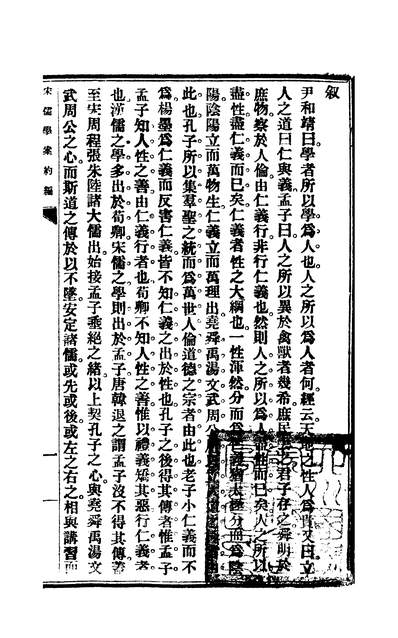 叙
尹和靖曰學者所以學爲人也人之所以爲人者何經云天地之性人爲貴又曰立
人之道曰仁與義孟子曰人之所以異於禽獸者幾希庶民去之君子存之舜明於
庶物察於人倫由仁義行非行仁義也然則人之所以爲人盡性而已矣人之所以
盡性盡仁義而已矣仁義者性之大綱也一性渾然分而爲仁義猶太極分而爲陰
陽陰陽立而萬物生仁義立而萬理出堯舜禹湯文武周公
此也孔子所以集羣聖之統而爲萬世人倫道德之宗者由此也老子小仁義而不
爲楊墨爲仁義而反害仁義皆不知仁義之出於性也孔子之後得其傳者惟孟子
孟子知人性之善由仁義行者也荀卿不知人性之善惟以禮義矯其惡行仁義者
也漢儒之學多出於荀卿宋儒之學則出於孟子唐韓退之謂孟子沒不得其傳蓋
至宋周程張朱陸諸大儒出始接孟子垂絕之緒以上契孔子之心與堯舜禹湯文
武周公之心而斯道之傳於以不墜安定諸儒或先或後或左之右之相與講習而
宋儒學案約編
一